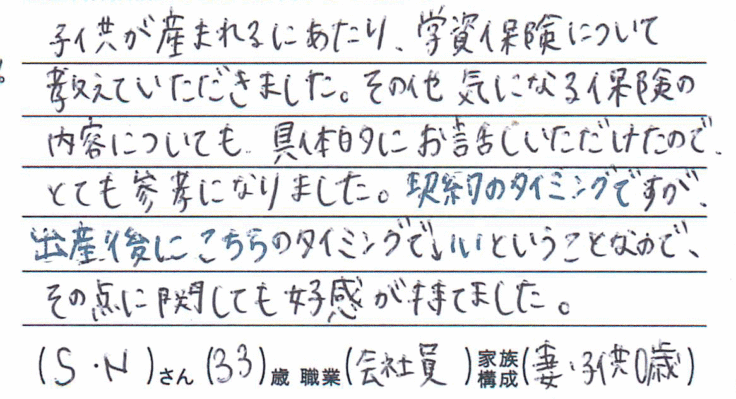 子供が産まれるにあたり、学資保険について
教えていただきました。その他気になる保険の
内容についても、具体的にお話しいただけたので、
とても参考になりました。契約のタイミングですが、
出産後にこちらのタイミングでいいということなので、
その点に関しても好感が持てました。
(S・N)さん(33)歳 職業(会社員)家族構成(妻・子供0歳)